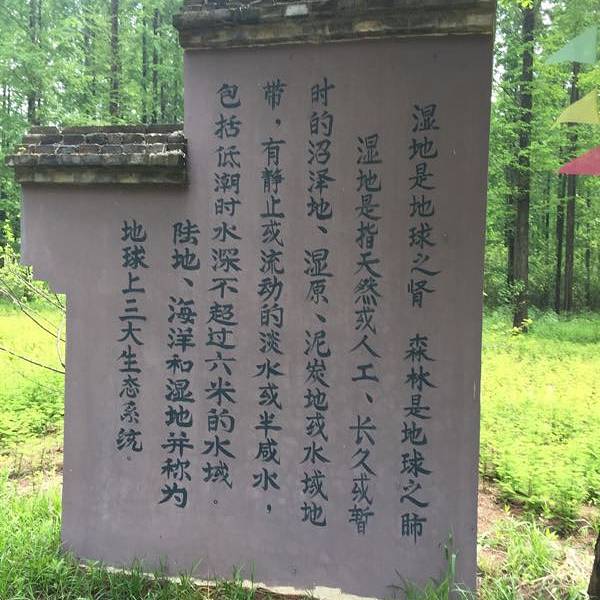 湿地是地球之肾 森林是地球之肺
湿地是指天然或人工、长久或暂
时的沼泽地、湿原、泥炭地或水域地
带，有静止或流动的淡水或半咸水，
包括低潮时水深不超过六米的水域。
陆地、海洋和湿地并称为
地球上三大生态系统。